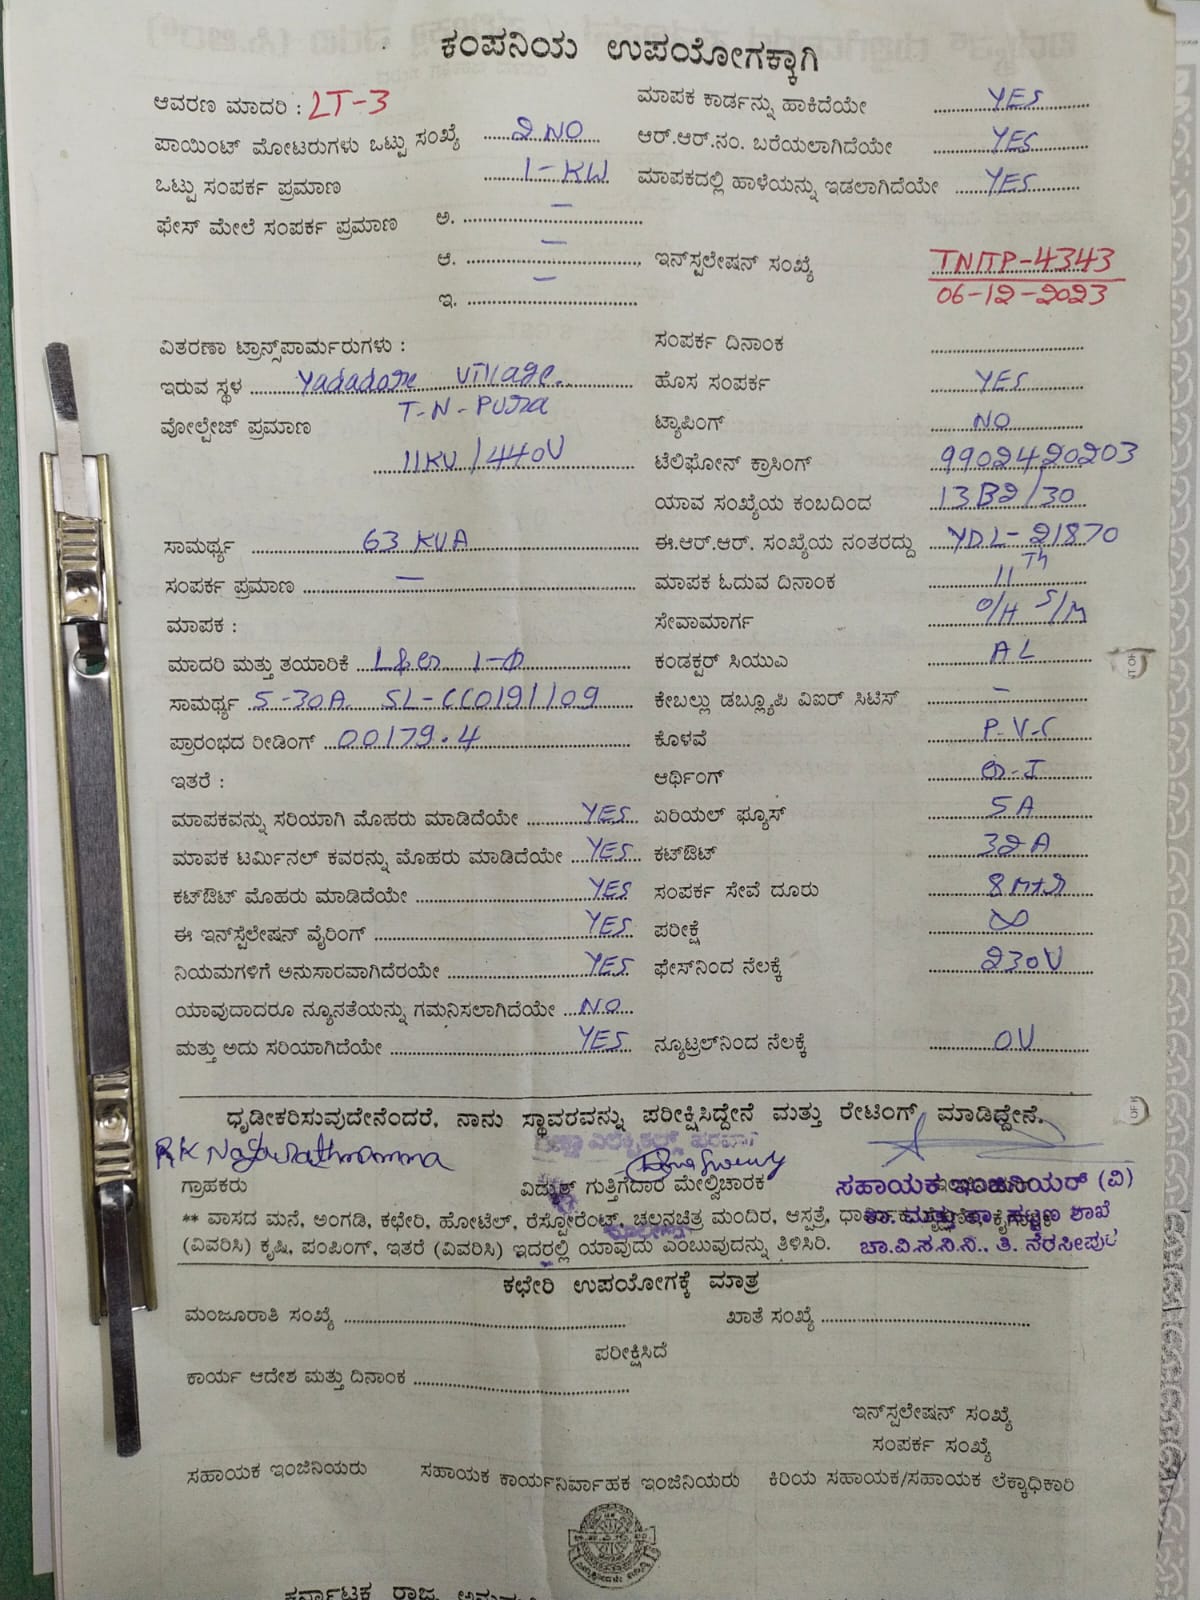 ಕಂಪನಿಯ ಉಪಯೋಗಕ್ಕಾಗಿ
ಆವರಣ ಮಾದರಿ : LT-3
ಮಾಪಕ ಕಾರ್ಡನ್ನು ಹಾಕಿದೆಯೇ YES
ಪಾಯಿಂಟ್ ಮೋಟರುಗಳು ಒಟ್ಟು ಸಂಖ್ಯೆ 2 NO
ಆರ್.ಆರ್.ನಂ. ಬರೆಯಲಾಗಿದೆಯೇ YES
ಒಟ್ಟು ಸಂಪರ್ಕ ಪ್ರಮಾಣ 1-KW
ಮಾಪಕದಲ್ಲಿ ಹಾಳೆಯನ್ನು ಇಡಲಾಗಿದೆಯೇ YES
ಫೇಸ್ ಮೇಲೆ ಸಂಪರ್ಕ ಪ್ರಮಾಣ ಅ. –
ಆ. –
ಇನ್‌ಸ್ಟಲೇಷನ್ ಸಂಖ್ಯೆ TNITP-4343
06-12-2023
ಇ. –
ವಿತರಣಾ ಟ್ರಾನ್ಸ್‌ಪಾರ್ಮರುಗಳು :
ಸಂಪರ್ಕ ದಿನಾಂಕ
ಇರುವ ಸ್ಥಳ Yadadore Village.
T-N-Pura
ಹೊಸ ಸಂಪರ್ಕ YES
ವೋಲ್ಟೇಜ್ ಪ್ರಮಾಣ
11KV/440V
ಟ್ಯಾಪಿಂಗ್ NO
ಟೆಲಿಫೋನ್ ಕ್ರಾಸಿಂಗ್ 9902420203
ಯಾವ ಸಂಖ್ಯೆಯ ಕಂಬದಿಂದ 13B2/30
ಸಾಮರ್ಥ್ಯ 63 KVA
ಈ.ಆರ್.ಆರ್. ಸಂಖ್ಯೆಯ ನಂತರದ್ದು YDL-21870
ಸಂಪರ್ಕ ಪ್ರಮಾಣ –
ಮಾಪಕ ಓದುವ ದಿನಾಂಕ 11Th
ಮಾಪಕ :
ಸೇವಾಮಾರ್ಗ O/H S/M
ಮಾದರಿ ಮತ್ತು ತಯಾರಿಕೆ 1-Φ
ಕಂಡಕ್ಟರ್ ಸಿಯುಎ AL
ಸಾಮರ್ಥ್ಯ 5-30A SL-CC0191109
ಕೇಬಲ್ಲು ಡಬ್ಲ್ಯೂಪಿ ವಿಐರ್ ಸಿಟಿಸ್ –
ಪ್ರಾರಂಭದ ರೀಡಿಂಗ್ 00179.4
ಕೊಳವೆ P.V.C
ಇತರೆ :
ಆರ್ಥಿಂಗ್
ಮಾಪಕವನ್ನು ಸರಿಯಾಗಿ ಮೊಹರು ಮಾಡಿದೆಯೇ YES
ಏರಿಯಲ್ ಫ್ಯೂಸ್ 5A
ಮಾಪಕ ಟರ್ಮಿನಲ್ ಕವರನ್ನು ಮೊಹರು ಮಾಡಿದೆಯೇ YES
ಕಟ್‌ಔಟ್ 32A
ಕಟ್‌ಔಟ್ ಮೊಹರು ಮಾಡಿದೆಯೇ YES
ಸಂಪರ್ಕ ಸೇವೆ ದೂರು 8 Mtr
ಈ ಇನ್‌ಸ್ಟೆಲೇಷನ್ ವೈರಿಂಗ್ YES
ಪರೀಕ್ಷೆ ∞
ನಿಯಮಗಳಿಗೆ ಅನುಸಾರವಾಗಿದೆರಯೇ YES
ಫೇಸ್‌ನಿಂದ ನೆಲಕ್ಕೆ 230V
ಯಾವುದಾದರೂ ನ್ಯೂನತೆಯನ್ನು ಗಮನಿಸಲಾಗಿದೆಯೇ NO
ಮತ್ತು ಅದು ಸರಿಯಾಗಿದೆಯೇ YES
ನ್ಯೂಟ್ರಲ್‌ನಿಂದ ನೆಲಕ್ಕೆ 0V
ಧೃಡೀಕರಿಸುವುದೇನೆಂದರೆ, ನಾನು ಸ್ಥಾವರವನ್ನು ಪರೀಕ್ಷಿಸಿದ್ದೇನೆ ಮತ್ತು ರೇಟಿಂಗ್ ಮಾಡಿದ್ದೇನೆ.
ಗ್ರಾಹಕರು
ವಿದ್ಯುತ್ ಗುತ್ತಿಗೆದಾರ ಮೇಲ್ವಿಚಾರಕ
ಸಹಾಯಕ ಇಂಜಿನಿಯರ್ (ವಿ)
** ವಾಸದ ಮನೆ, ಅಂಗಡಿ, ಕಛೇರಿ, ಹೋಟೆಲ್, ರೆಸ್ಟೋರೆಂಟ್, ಚಲನಚಿತ್ರ ಮಂದಿರ, ಆಸ್ಪತ್ರೆ,
ಶಾಖೆ
(ವಿವರಿಸಿ) ಕೃಷಿ, ಪಂಪಿಂಗ್, ಇತರೆ (ವಿವರಿಸಿ) ಇದರಲ್ಲಿ ಯಾವುದು ಎಂಬುವುದನ್ನು ತಿಳಿಸಿರಿ.
ಚಾ.ವಿ.ಸ.ನಿ.ನಿ., ತಿ. ನರಸೀಪುರ
ಕಛೇರಿ ಉಪಯೋಗಕ್ಕೆ ಮಾತ್ರ
ಮಂಜೂರಾತಿ ಸಂಖ್ಯೆ
ಖಾತೆ ಸಂಖ್ಯೆ
ಪರೀಕ್ಷಿಸಿದೆ
ಕಾರ್ಯ ಆದೇಶ ಮತ್ತು ದಿನಾಂಕ
ಇನ್‌ಸ್ಟಲೇಷನ್ ಸಂಖ್ಯೆ
ಸಂಪರ್ಕ ಸಂಖ್ಯೆ
ಸಹಾಯಕ ಇಂಜಿನಿಯರು
ಸಹಾಯಕ ಕಾರ್ಯನಿರ್ವಾಹಕ ಇಂಜಿನಿಯರು
ಕಿರಿಯ ಸಹಾಯಕ/ಸಹಾಯಕ ಲೆಕ್ಕಾಧಿಕಾರಿ
ಕರ್ನಾಟಕ ರಾಜ್ಯ